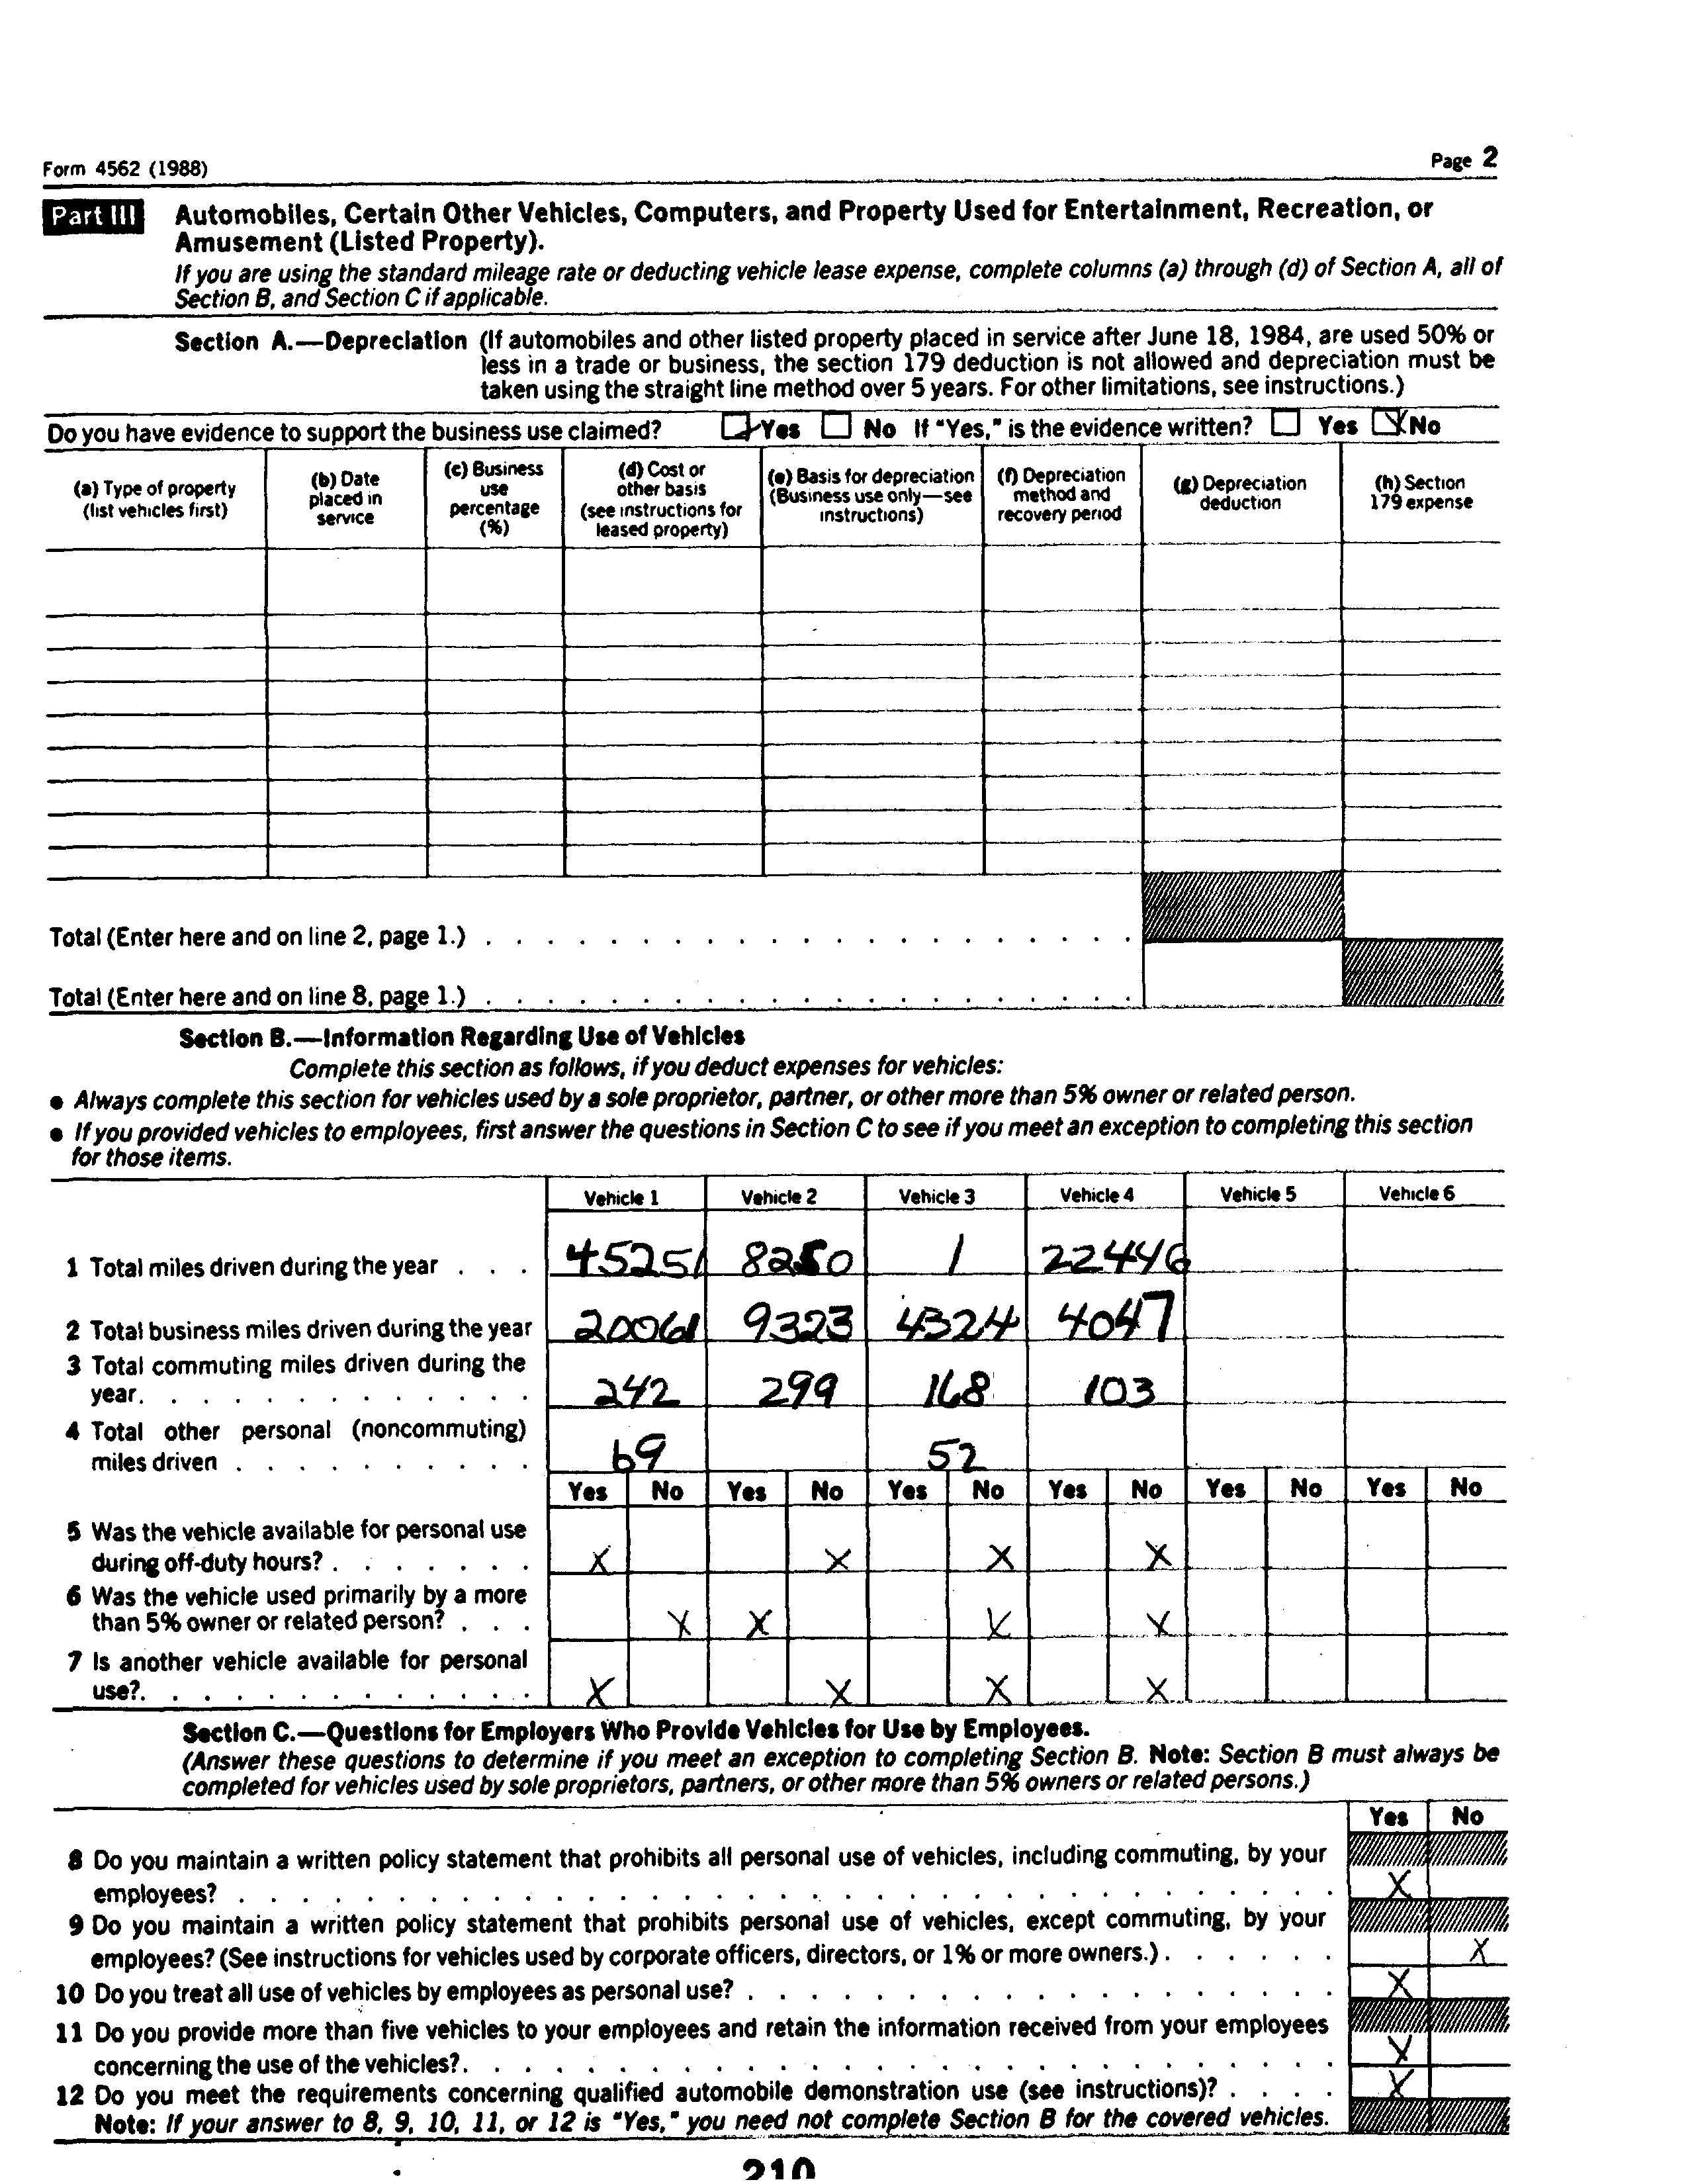 Form 4562 (1988) Page 2
Part III Automobiles, Certain Other Vehicles, Computers, and Property Used for Entertainment, Recreation, or
Amusement (Listed Property).
If you are using the standard mileage rate or deducting vehicle lease expense, complete columns (a) through (d) of Section A, all of
Section B, and Section C if applicable.
Section A.—Depreciation (If automobiles and other listed property placed in service after June 18, 1984, are used 50% or
less in a trade or business, the section 179 deduction is not allowed and depreciation must be
taken using the straight line method over 5 years. For other limitations, see instructions.)
Do you have evidence to support the business use claimed? Yes No If "Yes," is the evidence written? Yes X No
(a) Type of property
(list vehicles first)
(b) Date
placed in
service
(c) Business
use
percentage
(%)
(d) Cost or
other basis
(see instructions for
leased property)
(e) Basis for depreciation
(Business use only—see
instructions)
(f) Depreciation
method and
recovery period
(g) Depreciation
deduction
(h) Section
179 expense
Total (Enter here and on line 2, page 1.)
Total (Enter here and on line 8, page 1.)
Section B.—Information Regarding Use of Vehicles
Complete this section as follows, if you deduct expenses for vehicles:
● Always complete this section for vehicles used by a sole proprietor, partner, or other more than 5% owner or related person.
● If you provided vehicles to employees, first answer the questions in Section C to see if you meet an exception to completing this section
for those items.
Vehicle 1 Vehicle 2 Vehicle 3 Vehicle 4 Vehicle 5 Vehicle 6
1 Total miles driven during the year . . . 45251 8250 1 22446
2 Total business miles driven during the year 20061 9323 4324 4047
3 Total commuting miles driven during the
year. . . . . . . . . . . . . 242 299 168 103
4 Total other personal (noncommuting)
miles driven . . . . . . . . . . 69 52
Yes No Yes No Yes No Yes No Yes No Yes No
5 Was the vehicle available for personal use
during off-duty hours? . . . . . . . X X X X
6 Was the vehicle used primarily by a more
than 5% owner or related person? . . . X X X X
7 Is another vehicle available for personal
use?. . . . . . . . . . . . . X X X X
Section C.—Questions for Employers Who Provide Vehicles for Use by Employees.
(Answer these questions to determine if you meet an exception to completing Section B. Note: Section B must always be
completed for vehicles used by sole proprietors, partners, or other more than 5% owners or related persons.)
Yes No
8 Do you maintain a written policy statement that prohibits all personal use of vehicles, including commuting, by your
employees? X
9 Do you maintain a written policy statement that prohibits personal use of vehicles, except commuting, by your
employees? (See instructions for vehicles used by corporate officers, directors, or 1% or more owners.) . . . . . . X
10 Do you treat all use of vehicles by employees as personal use? X
11 Do you provide more than five vehicles to your employees and retain the information received from your employees
concerning the use of the vehicles?. X
12 Do you meet the requirements concerning qualified automobile demonstration use (see instructions)? . . . . X
Note: If your answer to 8, 9, 10, 11, or 12 is "Yes," you need not complete Section B for the covered vehicles.
210